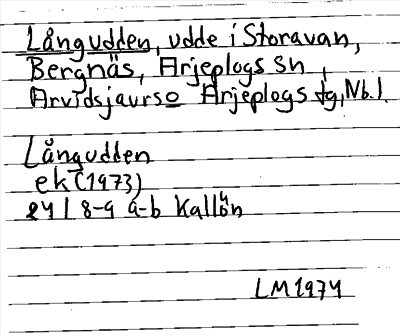 Långudden, udde i Storavan,
Bergnäs, Arjeplogs sn,
Arvidsjaurs o Arjeplogs tg, Nb.l.
Långudden
ek (1973)
24 I 8-9 a-b Kallön
LM 1974